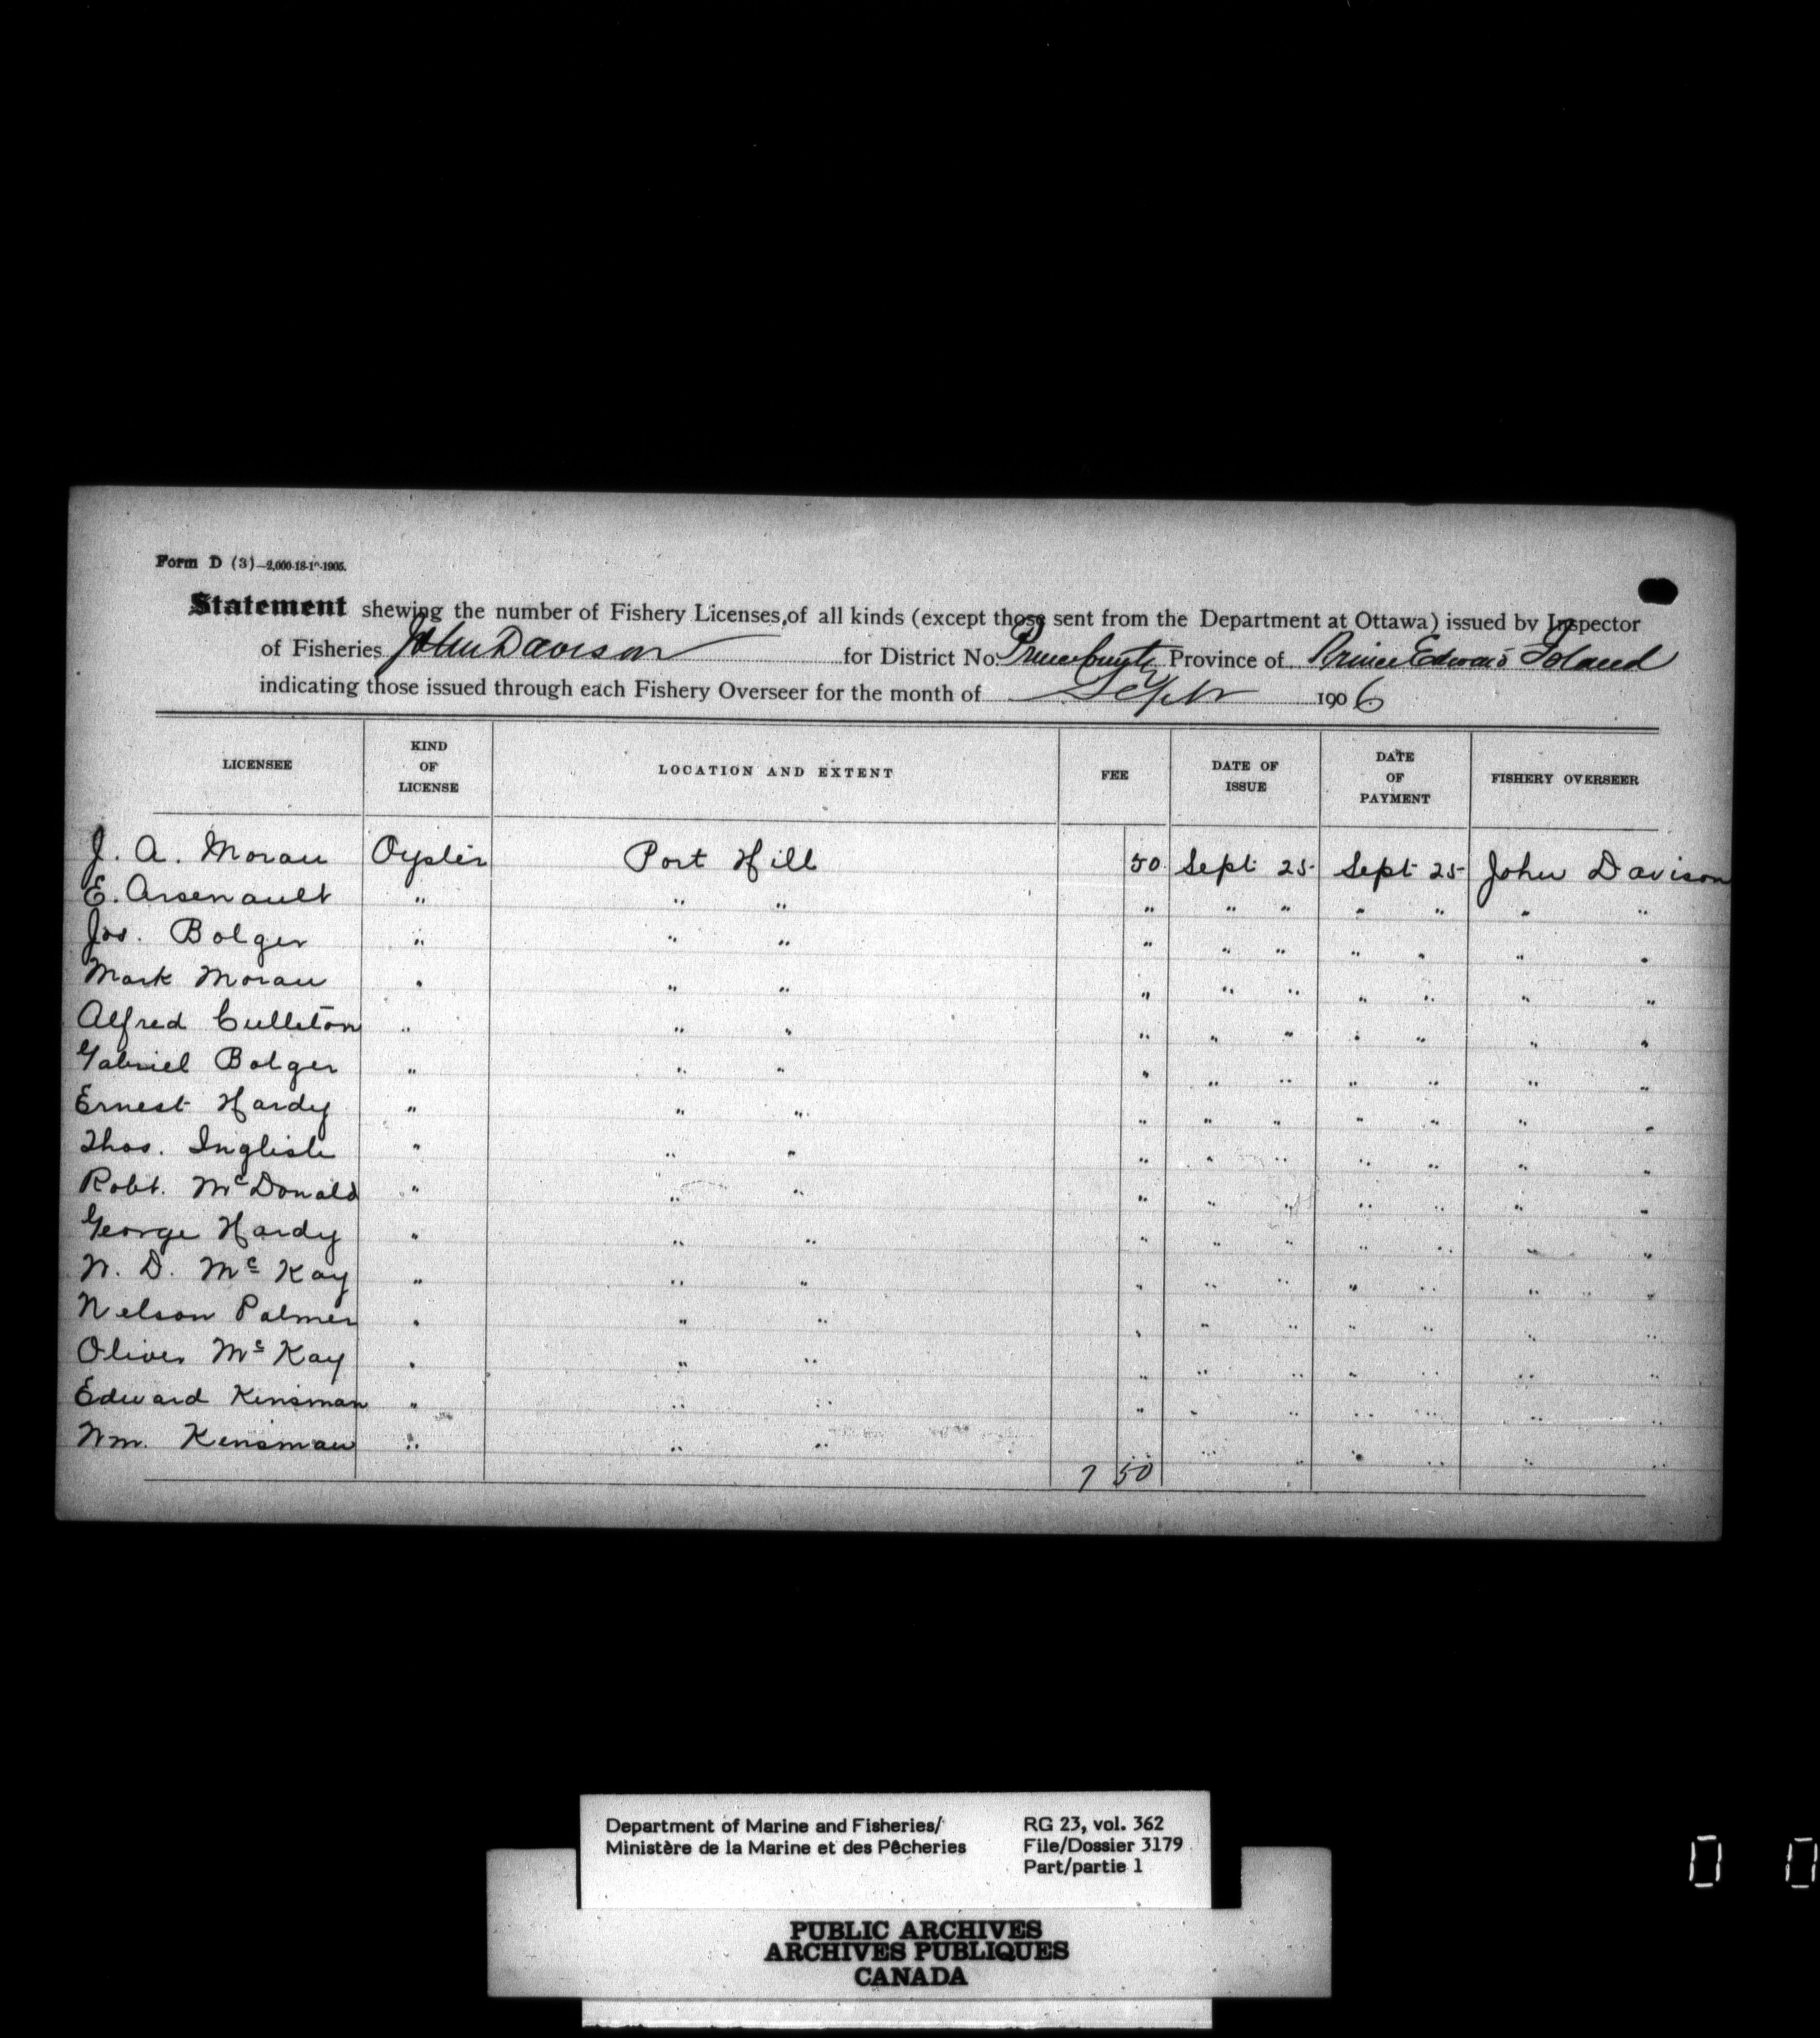 Form D (3)—2,000-18-1°-1905.
Statement shewing the number of Fishery Licenses, of all kinds (except those sent from the Department at Ottawa) issued by Inspector
of Fisheries John Davison for District No. Prince County Province of Prince Edward Island
indicating those issued through each Fishery Overseer for the month of Septr 1906
LICENSEE KIND OF LICENSE LOCATION AND EXTENT FEE DATE OF ISSUE DATE OF PAYMENT FISHERY OVERSEER
J. A. Moran Oyster Port Hill 50 Sept 25 Sept 25 John Davison
E. Arsenault " " " " " " " " " "
Jos. Bolger " " " " " " " " " "
Mark Moran " " " " " " " " " "
Alfred Culleton " " " " " " " " " "
Gabriel Bolger " " " " " " " " " "
Ernest Hardy " " " " " " " " " "
Thos. Inglish " " " " " " " " " "
Robt. McDonald " " " " " " " " " "
George Hardy " " " " " " " " " "
N. D. McKay " " " " " " " " " "
Nelson Palmer " " " " " " " " " "
Oliver McKay " " " " " " " " " "
Edward Kinsman " " " " " " " " " "
Wm. Kinsman " " " " " " " " " "
7 50
Department of Marine and Fisheries/ RG 23, vol. 362
Ministère de la Marine et des Pêcheries File/Dossier 3179
Part/partie 1
PUBLIC ARCHIVES
ARCHIVES PUBLIQUES
CANADA
0 0